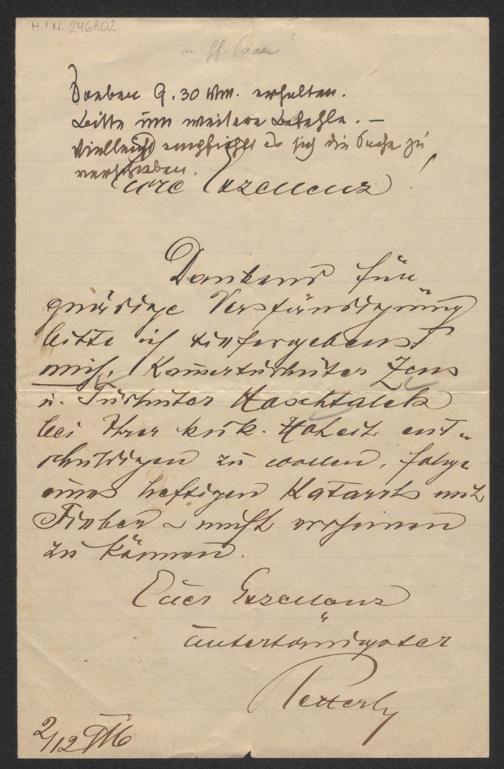 H.I.N. 246802
Soeben 9.30 Vm. erhalten.
Bitte um weitere Befehle. –
Vielleicht empfiehlt es sich die Sache zu
verschieben.
Eure Exzellenz!
Dankend für
gnädige Verständigung
bitte ich tiefergebenst
mich, Kammertürhüter Zens
u. Türhüter Haschtalek
bei Ihrer k.u.k. Hoheit ent-
schuldigen zu wollen, folge
eines heftigen Katarrhs mit
Fieber – nicht erscheinen
zu können.
Euer Exzellenz
untertänigster
2/12